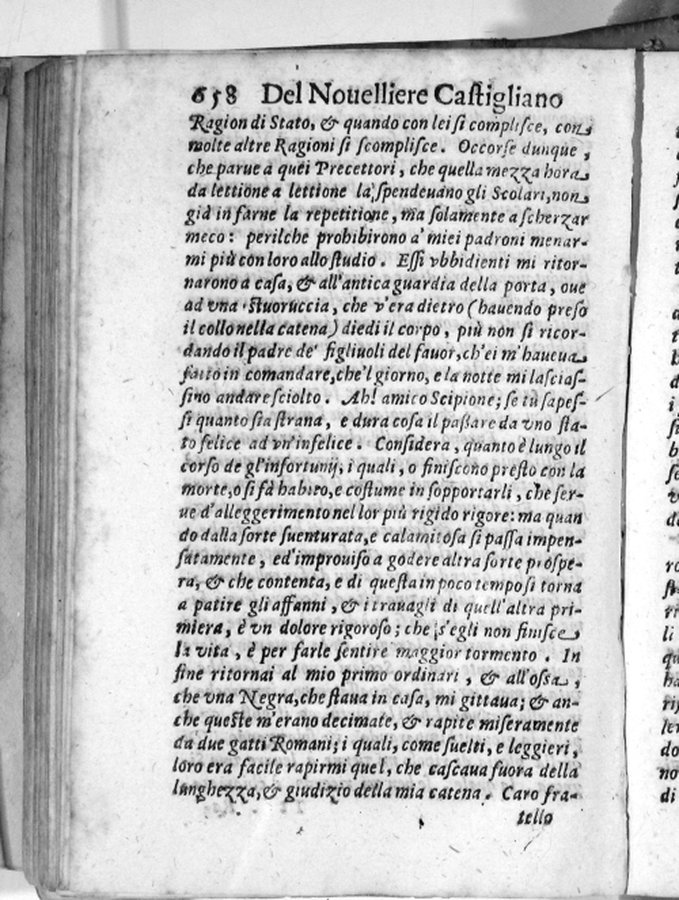 658 Del Nouelliere Castigliano
Ragion di Stato, & quando con lei si complisce, con
molte altre Ragioni si scomplisce. Occorse dunque,
che parue a quei Precettori, che quella mezza hora
da lettione a lettione la spendeuano gli Scolari, non
già in farne la repetitione, ma solamente a scherzar
meco: perilche prohibirono a' miei padroni menar-
mi più con loro allo studio. Essi vbbidienti mi ritor-
narono a casa, & all'antica guardia della porta, oue
ad vna stuoruccia, che v'era dietro (hauendo preso
il collo nella catena) diedi il corpo, più non si ricor-
dando il padre de' figliuoli del fauor, ch'ei m'haueua
fatto in comandare, che'l giorno, e la notte mi lascias-
sino andare sciolto. Ah! amico Scipione; se tù sapes-
si quanto sia strana, e dura cosa il passare da vno sta-
to felice ad vn'infelice. Considera, quanto è lungo il
corso de gl'infortunij, i quali, o finiscono presto con la
morte, o si fà habito, e costume in sopportarli, che ser-
ue d'alleggerimento nel lor più rigido rigore: ma quan
do dalla sorte suenturata, e calamitosa si passa impen-
satamente, ed'improuiso a godere altra sorte prospe-
ra, & che contenta, e di questa in poco tempo si torna
a patire gli affanni, & i trauagli di quell'altra pri-
miera, è vn dolore rigoroso; che s'egli non finisce
la vita, è per farle sentire maggior tormento. In
fine ritornai al mio primo ordinari, & all'ossa,
che vna Negra, che staua in casa, mi gittaua; & an-
che queste m'erano decimate, & rapite miseramente
da due gatti Romani; i quali, come suelti, e leggieri,
loro era facile rapirmi quel, che cascaua fuora della
lunghezza, & giudizio della mia catena. Caro fra-
tello